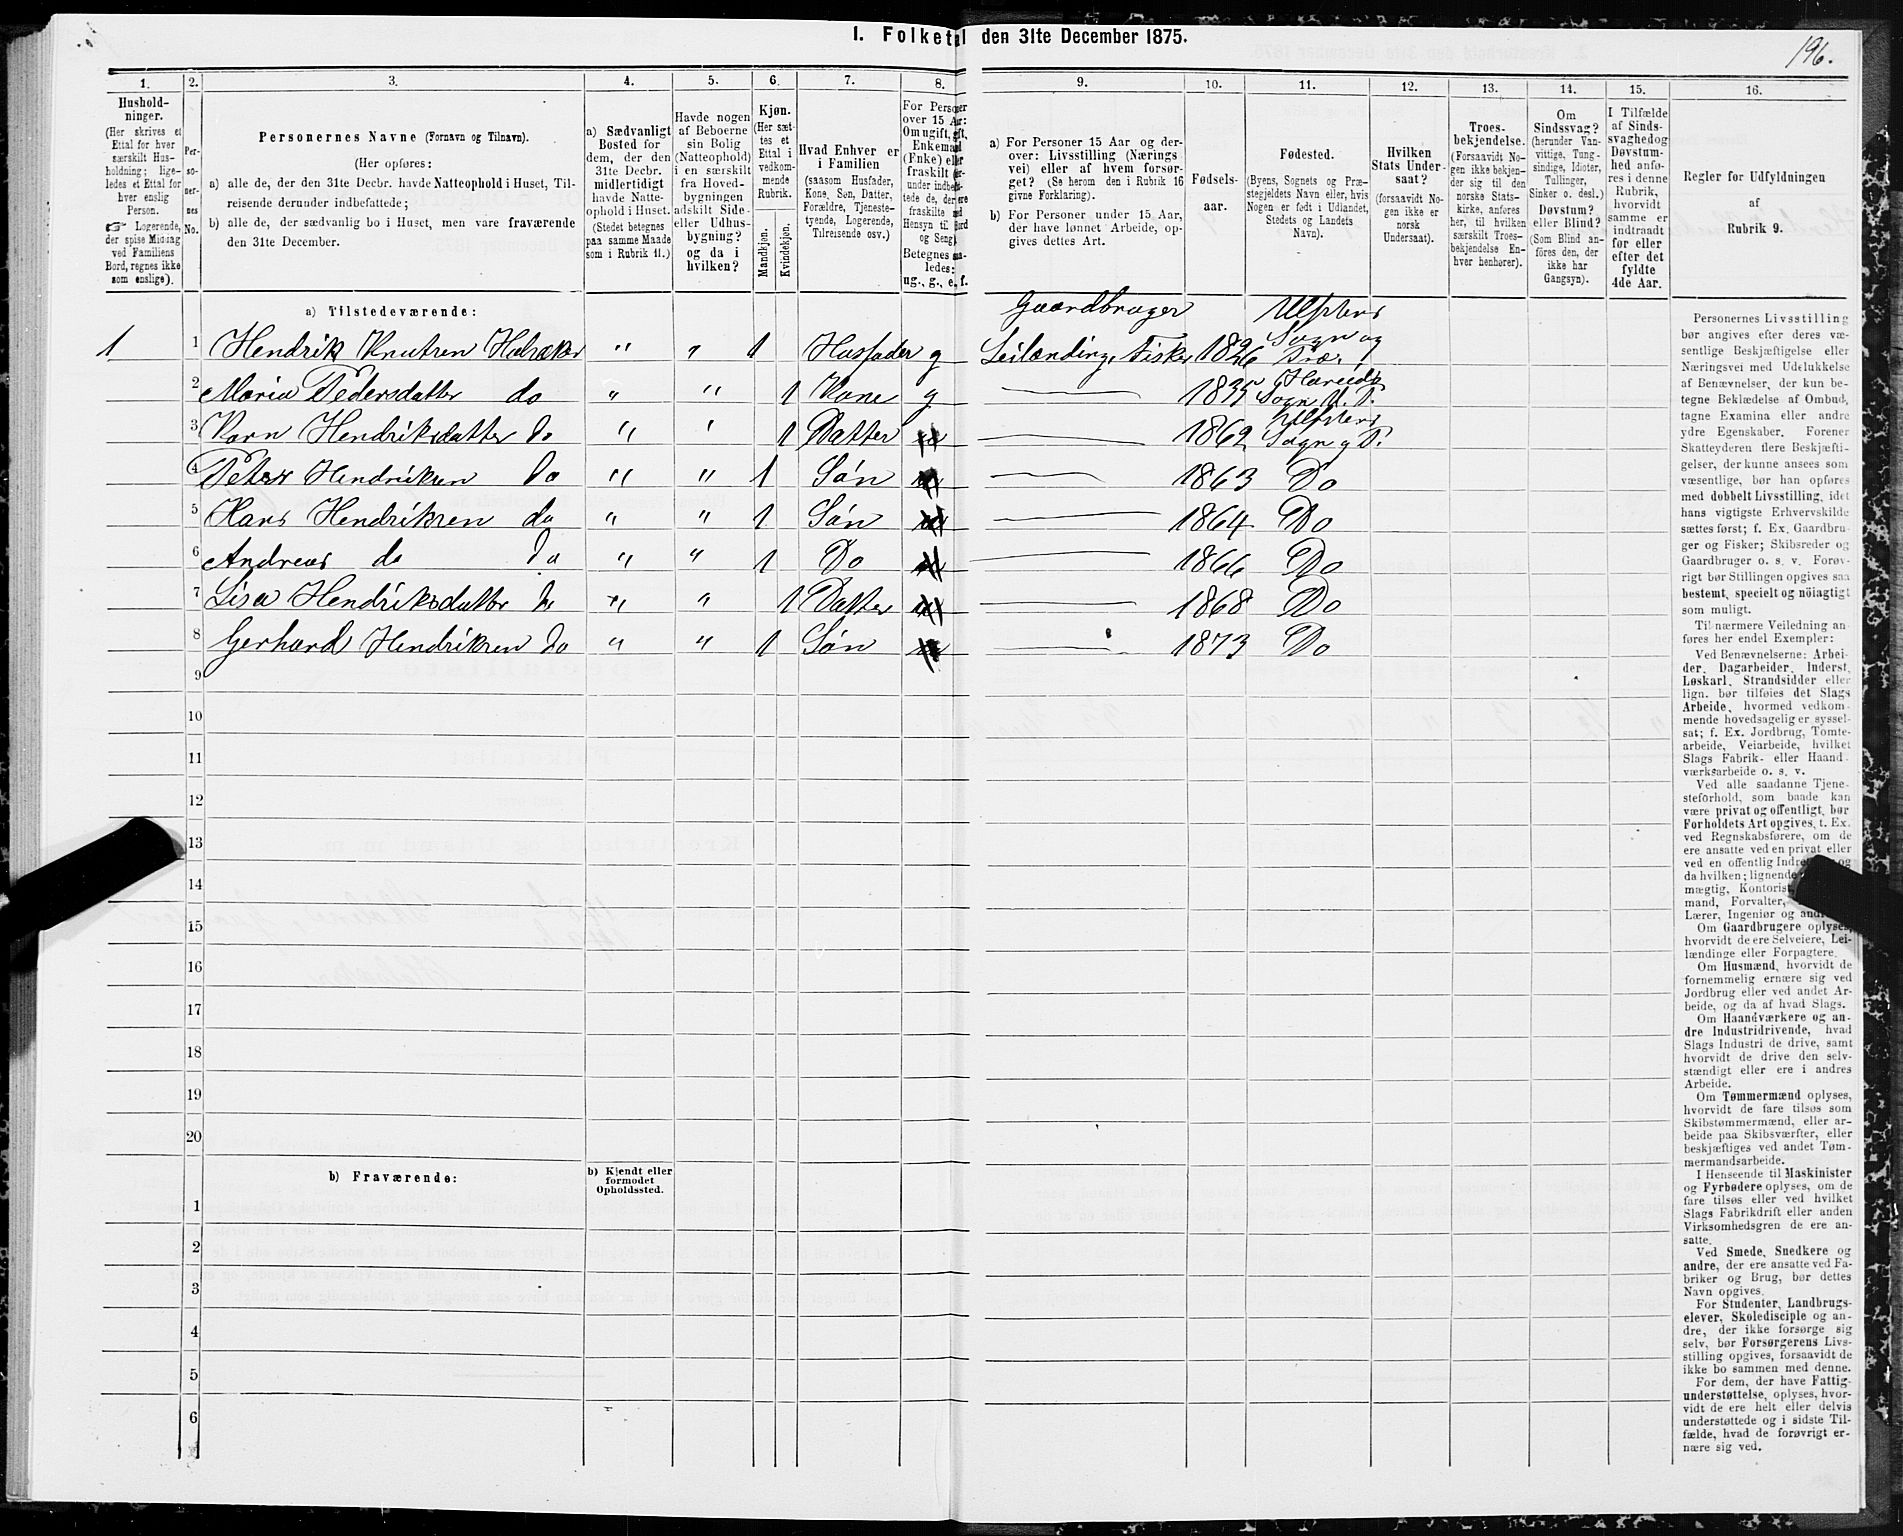 I. Folketal den 31te December 1875.
196.
1.
Hushold-
ninger.
(Her skrives et
Ettal for hver
særskilt Hus-
holdning; lige-
ledes et Ettal for
hver enslig
Person.
☞ Logerende,
der spise Middag
ved Familiens
Bord, regnes ikke
som enslige).
2.
Per-
so-
ner-
nes
No.
3.
Personernes Navne (Fornavn og Tilnavn).
(Her opføres:
a) alle de, der den 31te Decbr. havde Natteophold i Huset, Til-
reisende derunder indbefattede;
b) alle de, der sædvanlig bo i Huset, men vare fraværende
den 31te December.
4.
a) Sædvanligt
Bosted for
dem, der den
31te Decbr.
midlertidigt
havde Natte-
ophold i Huset.
(Stedet betegnes
paa samme Maade
som i Rubrik 11.)
5.
Havde nogen
af Beboerne
sin Bolig
(Natteophold)
i en særskilt
fra Hoved-
bygningen
adskilt Side-
eller Udhus-
bygning?
og da i
hvilken?
6.
Kjøn.
(Her sæt-
tes et
Ettal i
vedkom-
mende
Rubrik.
Mandkjøn.
Kvindekjøn.
7.
Hvad Enhver er
i Familien
(saasom Husfader,
Kone, Søn, Datter,
Forældre, Tjeneste-
tyende, Logerende,
Tilreisende osv.)
8.
For Personer
over 15 Aar:
Om ugift, gift,
Enkemand
(Enke) eller
fraskilt
Betegnes saa-
ledes:
ug., g., e. f.
9.
a) For Personer 15 Aar og der-
over: Livsstilling (Nærings
vei) eller af hvem forsør-
get? (Se herom den i Rubrik 16
givne Forklaring).
b) For Personer under 15 Aar,
der have lønnet Arbeide, op-
gives dettes Art.
10.
Fødsels-
aar.
11.
Fødested.
(Byens, Sognets og Præ-
stegjeldets Navn eller, hvis
Nogen er født i Udlandet,
Stedets og Landets
Navn).
12.
Hvilken
Stats Under-
saat?
(forsaavidt No-
gen ikke er
norsk
Undersaat).
13.
Troes-
bekjendelse.
(Forsaavidt No-
gen ikke bekjen-
der sig til den
norske Stats-
kirke, anføres
her, til hvilken
særskilt Troes-
bekjendelse En-
hver henhører).
14.
Om
Sindssvag?
(herunder Van-
vittige, Tung-
sindige, Idioter,
Tullinger,
Sinker o. desl.)
Døvstum?
eller Blind?
(Som Blind an-
føres den, der
ikke har
Gangsyn).
15.
I Tilfælde
af Sinds-
svaghed og
Døvstum-
hed anfø-
res i denne
Rubrik,
hvorvidt
samme er
indtraadt
før eller
efter det
fyldte
4de Aar.
16.
Regler for Udfyldningen
af
Rubrik 9.
a) Tilstedeværende:
Gaardbruger Ulfstens
1 1 Hendrik Knutsen Halsaker " " 1 Husfader g Leilænding, Fisker 1826 Sogn og Præ.
2 Maria Pedersdatter do " " 1 Kone g 1835 Hareids Sogn U. P.
3 Karn Hendriksdatter do " " 1 Datter 1862 Ulfstens Sogn og P.
4 Peter Hendriksen do " " 1 Søn 1863 Do
5 Hans Hendriksen do " " 1 Søn 1864 Do
6 Andreas do do " " 1 Do 1866 Do
7 Lisa Hendriksdatter do " " 1 Datter 1868 Do
8 Gerhard Hendriksen do " " 1 Søn 1873 Do
9
10
11
12
13
14
15
16
17
18
19
20
b) Fraværende:
b) Kjendt eller
formodet
Opholdssted.
1
2
3
4
5
6
Personernes Livsstilling
bør angives efter deres væ-
sentlige Beskjæftigelse eller
Næringsvei med Udelukkelse
af Benævnelser, der kun be-
tegne Beklædelse af Ombud,
tagne Examina eller andre
ydre Egenskaber. Forener
Skatteyderen flere Beskjæfti-
gelser, der kunne ansees som
væsentlige, bør han opføres
med dobbelt Livsstilling, idet
hans vigtigste Erhvervskilde
sættes først; f. Ex. Gaardbru-
ger og Fisker; Skibsreder og
Gaardbruger o. s. v. Forøv-
rigt bør Stillingen opgives saa
bestemt, specielt og nøiagtigt
som muligt.
Til nærmere Veiledning an-
føres her endel Exempler:
Ved Benævnelserne: Arbei-
der, Dagarbeider, Inderst,
Løskarl, Strandsidder eller
lign. bør tilføies det Slags
Arbeide, hvormed vedkom-
mende hovedsagelig er syssel-
sat; f. Ex. Jordbrug, Tomte-
arbeide, Veiarbeide, hvilket
Slags Fabrik- eller Haand
værksarbeide o. s. v.
Ved alle saadanne Tjene-
steforhold, som baade kan
være privat og offentligt, bør
Forholdets Art opgives, t. Ex.
ved Regnskabsførere, om de
ere ansatte ved en privat eller
ved en offentlig
da hvilken; lignende
mægtig, Kontorist,
mand, Forvalter,
Lærer, Ingeniør og
Om Gaardbrugere oplyses,
hvorvidt de ere Selveiere, Lei-
lændinge eller Forpagtere.
Om Husmænd, hvorvidt de
fornemmelig ernære sig ved
Jordbrug eller ved andet Ar-
beide, og da af hvad Slags.
Om Haandværkere og an-
dre Industridrivende, hvad
Slags Industri de drive, samt
hvorvidt de drive den selv-
stændigt eller ere i andres
Arbeide.
Om Tømmermænd oplyses,
hvorvidt de fare tilsøs som
Skibstømmermænd, eller ar-
beide paa Skibsværfter, eller
beskjæftiges ved andet Tøm-
mermandsarbeide.
I Henseende til Maskinister
og Fyrbødere oplyses, om de
fare tilsøs eller ved hvilket
Slags Fabrikdrift eller anden
Virksomhedsgren de ere an-
satte.
Ved Smede, Snedkere og
andre, der ere ansatte ved Fa-
briker og Brug, bør dettes
Navn opgives.
For Studenter, Landbrugs-
elever, Skoledisciple og an-
dre, der ikke forsørge sig
selv, bør Forsørgerens Livs-
stilling opgives, forsaavidt de
ikke bo sammen med denne.
For dem, der have Fattig-
understøttelse, oplyses, hvor-
vidt de ere helt eller delvis
understøttede og i sidste Til-
fælde, hvad de forøvrigt er-
nære sig ved.